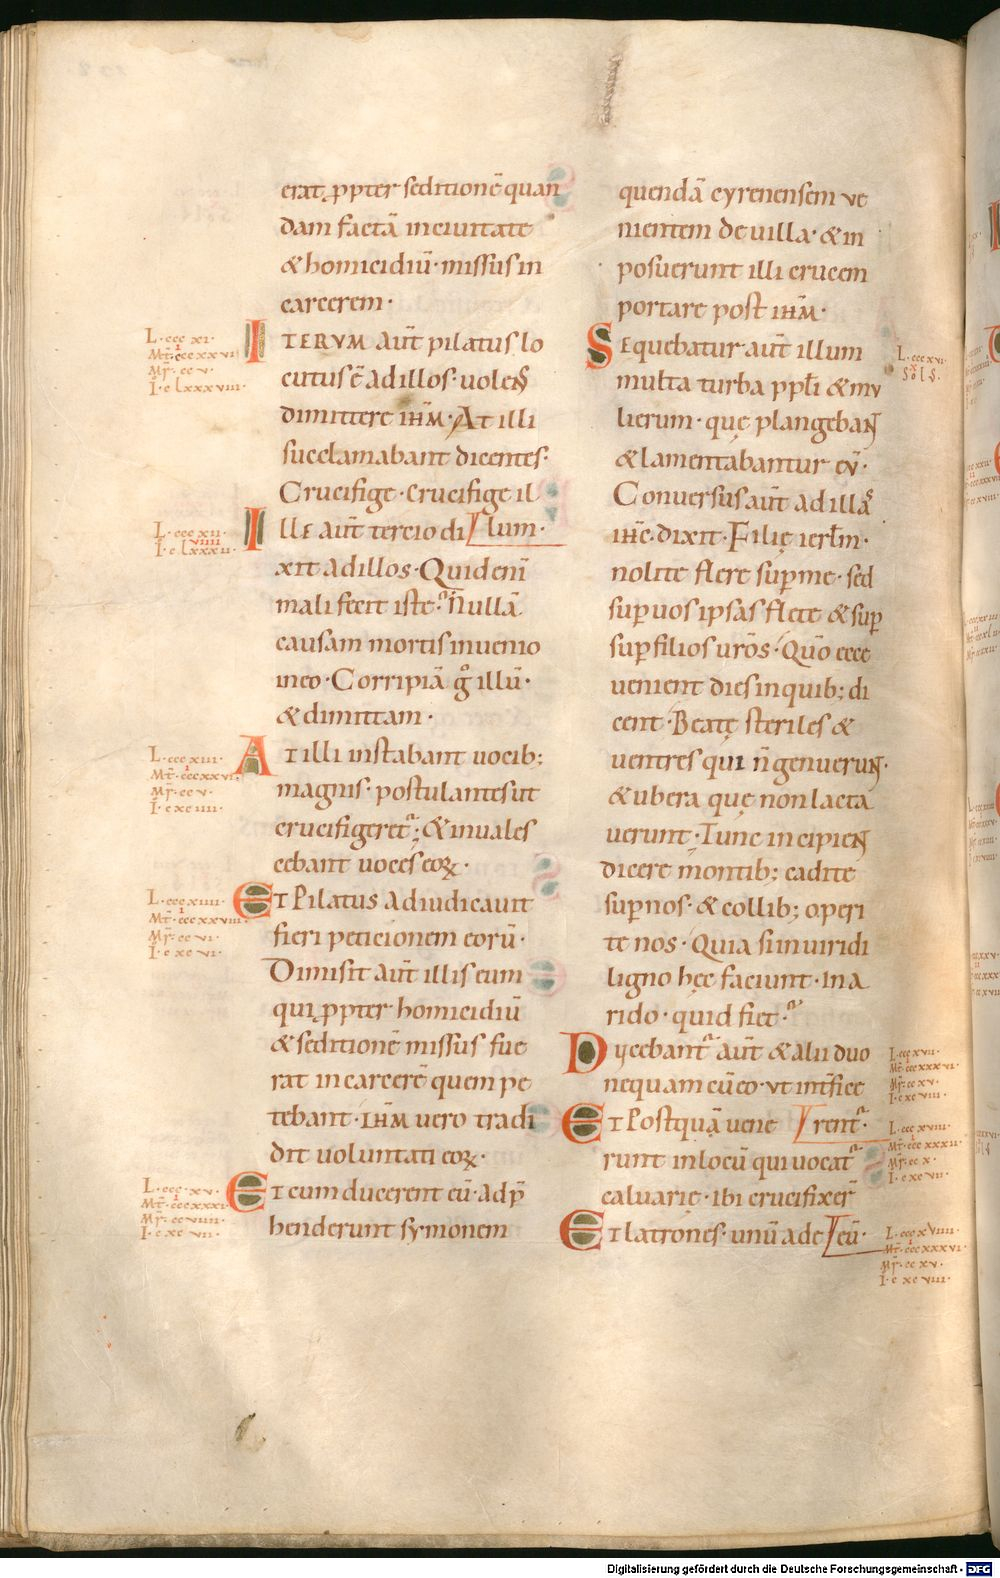 erat. ꝓpter seditionē quan
dam factā in ciuitate
& homicidiū · missus in
carcerem ·
L · ccc xi ·
Mt̄ · ccc xx vi
Mr̄ · cc v ·
I · c lxxxviii ·
ITERVM aūt pilatus lo
cutus ē ad illos · uolens
dimittere ihm̄ · At illi
succlamabant dicentes ·
Crucifige · crucifige il
lum ·
L · ccc xii ·
I · c lxxxii ·
ILLE aūt tercio di
xit ad illos · Quid enī
mali fecit iste · Nullā
causam mortis inuenio
in eo · Corripiā g° illū ·
& dimittam ·
L · ccc xiii ·
Mt̄ · ccc xx vi ·
Mr̄ · cc v ·
I · c xc iiii ·
AT illi instabant uocib;
magnis · postulantes ut
crucifigeret · & inuales
cebant uoces eoꝝ ·
L · ccc xiiii ·
Mt̄ · ccc xx viii ·
Mr̄ · cc vi ·
I · c xc vi ·
ET Pilatus adiudicauit
fieri peticionem eorū ·
Dimisit aūt illis eum
qui ꝓpter homicidiū
& seditionē missus fue
rat in carcerē quem pe
tebant · ihm̄ uero tradi
dit uoluntati eoꝝ ·
L · ccc · xv ·
Mt̄ · ccc xxxi
Mr̄ · cc viiii ·
I · c xc vii ·
ET cum ducerent eū · adp̄
henderunt symonem
quendā cyrenensem ve
nientem de uilla · & in
posuerunt illi crucem
portare post ihm̄ ·
SEquebatur aūt illum
L · ccc xvi ·
Sol S ·
multa turba pp̄li & mv
lierum · quę plangebaɴᴛ
& lamentabantur ev̄ ·
Conversus aūt ad illas
ihc̄ · dixit · Filię ierl̄m ·
nolite flere suꝑ me · sed
suꝑ uos ipsas flete & suꝑ
suꝑ filios urōs · Qūo ecce
uenient dies in quib; di
cent · Beatę steriles &
uentres qui n̄ genuerunt ·
& ubera quę non lacta
uerunt · Tunc incipient
dicere montib; cadite
suꝑ nos · & collib; operi
te nos · Quia si in uiridi
ligno hęc faciunt · in a
rido · quid fiet ·
DVcebant aūt & alii duo
L · ccc xvii ·
Mt̄ · ccc xxx vi ·
Mr̄ · cc xv ·
I · c xc viii ·
nequam cū eo · vt int̄fice
rent ·
ET Postquā uene
L · ccc xviii ·
Mt̄ · ccc xxx ii ·
Mr̄ · cc x ·
I · c xc vii ·
runt in locū qui uocat̄
caluarię · ibi crucifixer̄
eū ·
ET latrones · unū a de
L · ccc xviiii ·
Mt̄ · ccc xxx vi ·
Mr̄ · cc xv ·
I · c xc viii ·
Digitalisierung gefördert durch die Deutsche Forschungsgemeinschaft - DFG